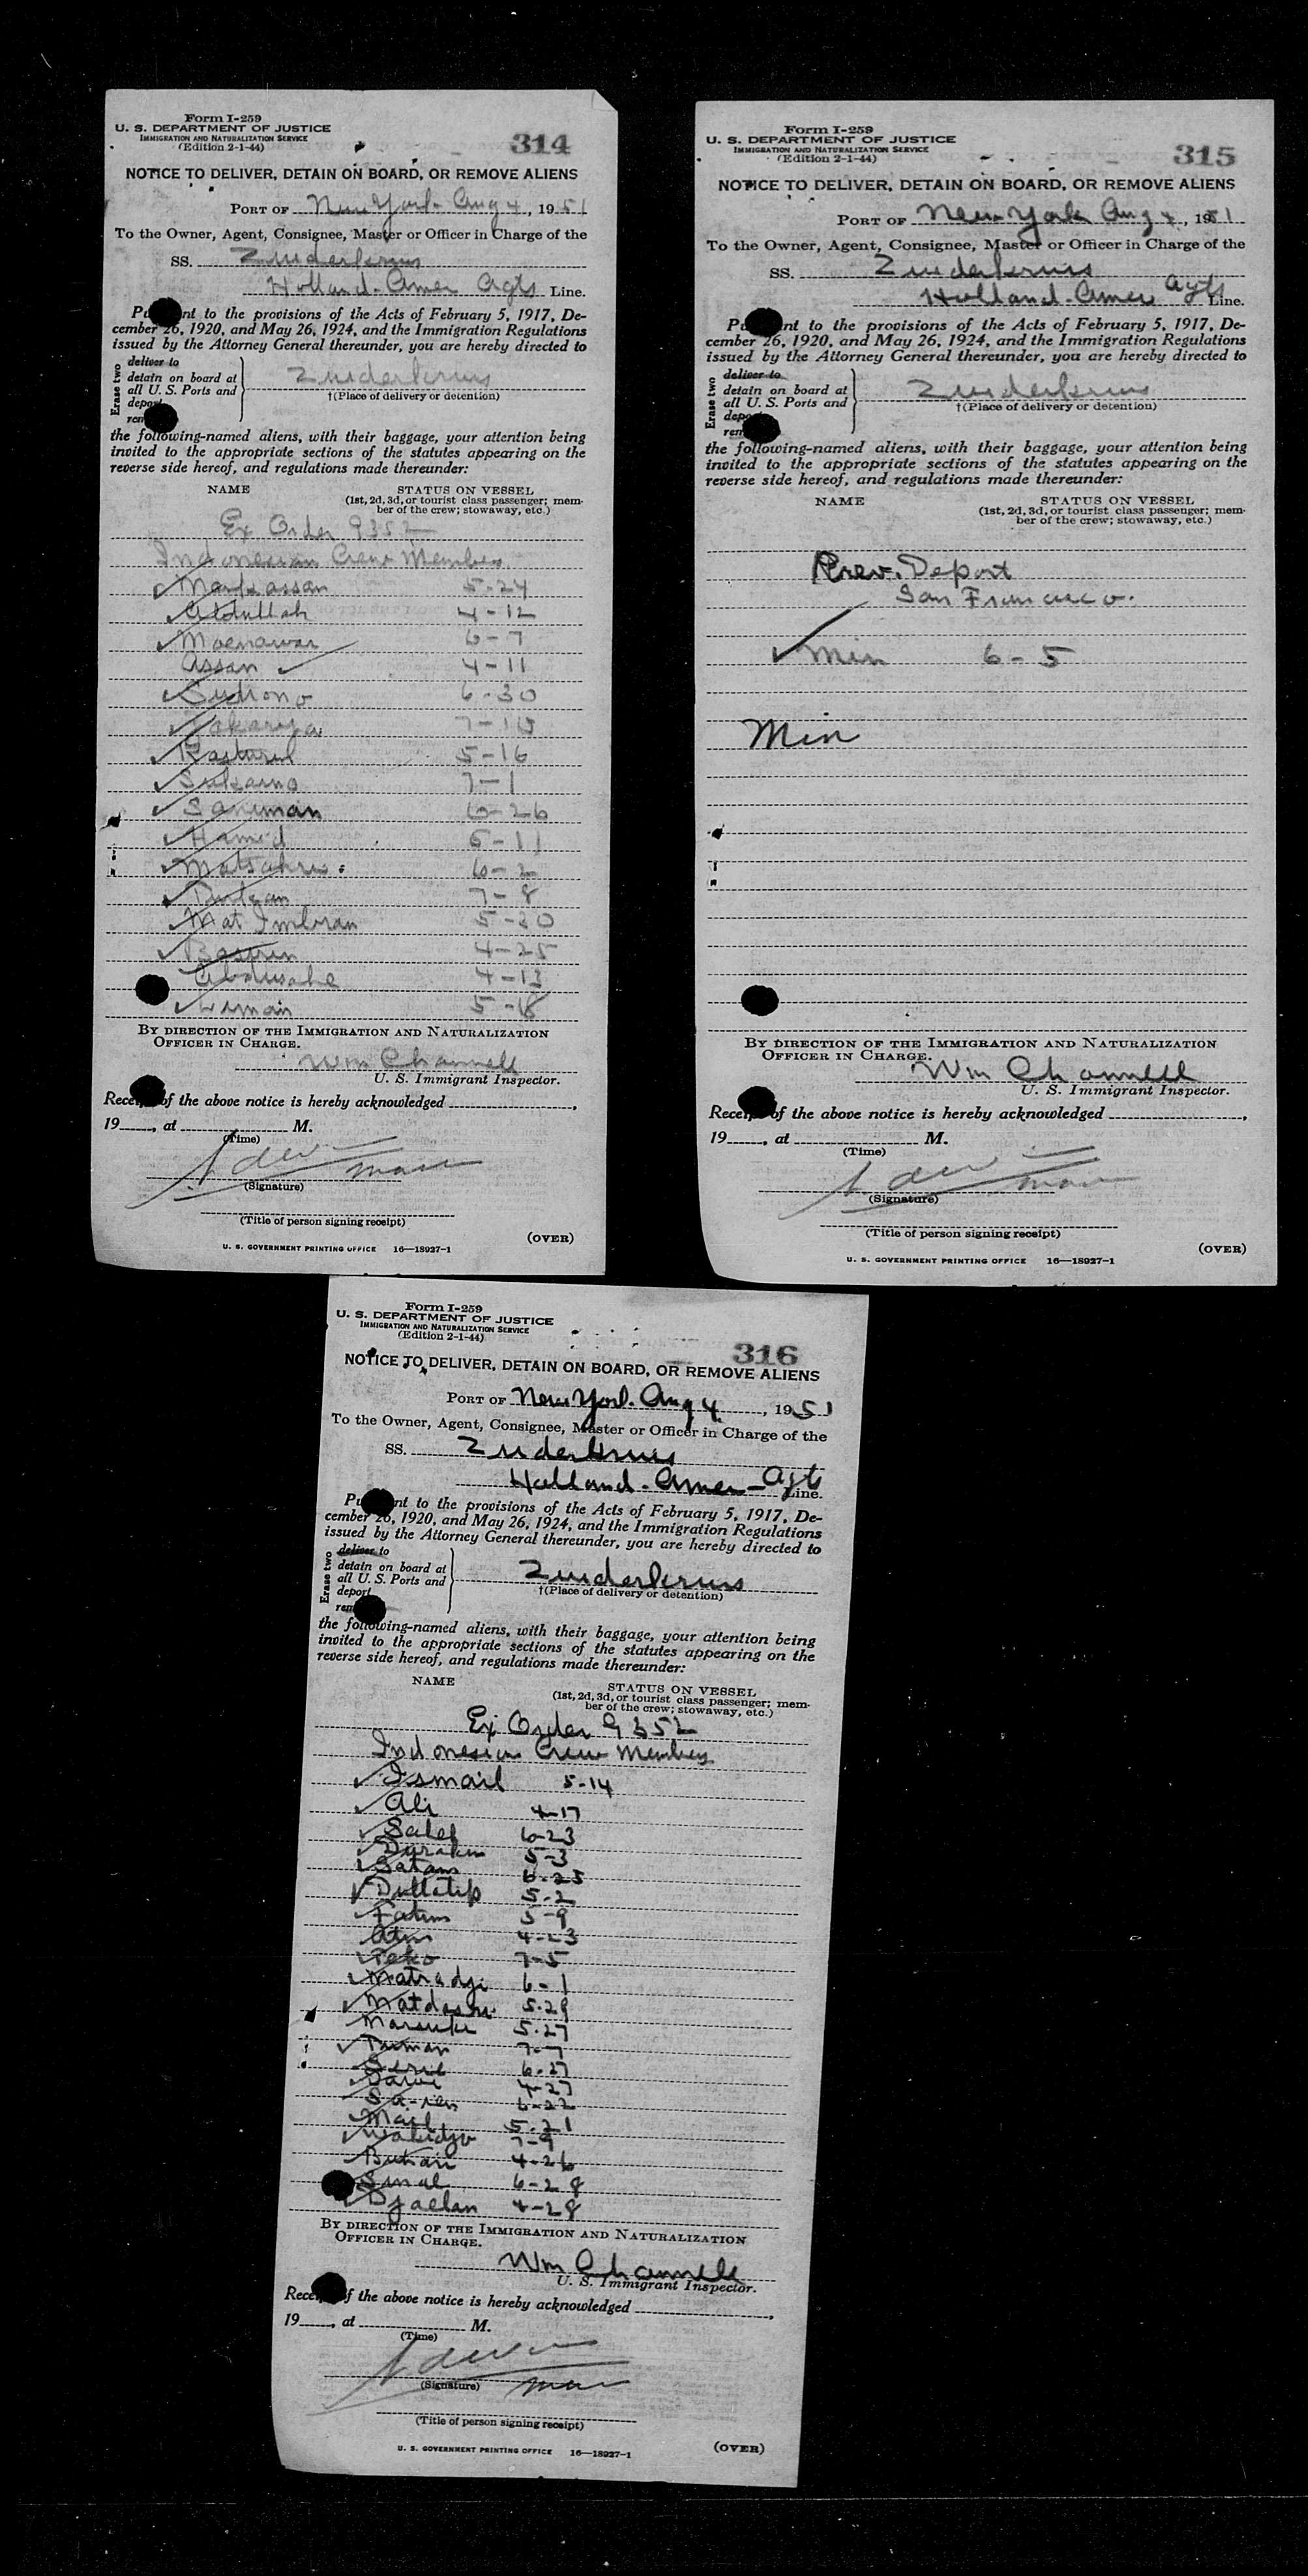 Form I-259
U. S. DEPARTMENT OF JUSTICE
IMMIGRATION AND NATURALIZATION SERVICE
(Edition 2-1-44)
314
NOTICE TO DELIVER, DETAIN ON BOARD, OR REMOVE ALIENS
PORT OF New York Aug 4, 1951
To the Owner, Agent, Consignee, Master or Officer in Charge of the
SS. Zuiderkruis
Holland-Amer Agts Line.
to the provisions of the Acts of February 5, 1917, De-
cember 26, 1920, and May 26, 1924, and the Immigration Regulations
issued by the Attorney General thereunder, you are hereby directed to
Erase two
deliver to
detain on board at
all U. S. Ports and
deport
Zuiderkruis
†(Place of delivery or detention)
the following-named aliens, with their baggage, your attention being
invited to the appropriate sections of the statutes appearing on the
reverse side hereof, and regulations made thereunder:
NAME STATUS ON VESSEL
(1st, 2d, 3d, or tourist class passenger; mem-
ber of the crew; stowaway, etc.)
Ex Order 9352
Indonesian Crew Members
Markassan 5-24
Abdullah 4-12
Moenawar 6-7
Assan 4-11
Sudiono 6-30
5-16
Sukarno 7-1
Saniman 6-26
Hamid 5-11
6-2
7-8
Mat Imbran 5-30
4-25
4-13
5-18
BY DIRECTION OF THE IMMIGRATION AND NATURALIZATION
OFFICER IN CHARGE.
Wm Channell
U. S. Immigrant Inspector.
of the above notice is hereby acknowledged ,
19 , at M.
(Time)
(Signature)
(Title of person signing receipt)
(OVER)
U. S. GOVERNMENT PRINTING OFFICE 16—18927-1
Form I-259
U. S. DEPARTMENT OF JUSTICE
IMMIGRATION AND NATURALIZATION SERVICE
(Edition 2-1-44)
315
NOTICE TO DELIVER, DETAIN ON BOARD, OR REMOVE ALIENS
PORT OF New York Aug 4, 1951
To the Owner, Agent, Consignee, Master or Officer in Charge of the
SS. Zuiderkruis
Holland-Amer Agts Line.
to the provisions of the Acts of February 5, 1917, De-
cember 26, 1920, and May 26, 1924, and the Immigration Regulations
issued by the Attorney General thereunder, you are hereby directed to
Erase two
deliver to
detain on board at
all U. S. Ports and
Zuiderkruis
†(Place of delivery or detention)
the following-named aliens, with their baggage, your attention being
invited to the appropriate sections of the statutes appearing on the
reverse side hereof, and regulations made thereunder:
NAME STATUS ON VESSEL
(1st, 2d, 3d, or tourist class passenger; mem-
ber of the crew; stowaway, etc.)
Prev. Deport
San Francisco.
Min 6-5
Min
BY DIRECTION OF THE IMMIGRATION AND NATURALIZATION
OFFICER IN CHARGE.
Wm Channell
U. S. Immigrant Inspector.
Receipt of the above notice is hereby acknowledged ,
19 , at M.
(Time)
(Signature)
(Title of person signing receipt)
(OVER)
U. S. GOVERNMENT PRINTING OFFICE 16—18927-1
Form I-259
U. S. DEPARTMENT OF JUSTICE
IMMIGRATION AND NATURALIZATION SERVICE
(Edition 2-1-44)
316
NOTICE TO DELIVER, DETAIN ON BOARD, OR REMOVE ALIENS
PORT OF New York Aug 4, 1951
To the Owner, Agent, Consignee, Master or Officer in Charge of the
SS. Zuiderkruis
Holland-Amer-Agts Line.
to the provisions of the Acts of February 5, 1917, De-
cember 26, 1920, and May 26, 1924, and the Immigration Regulations
issued by the Attorney General thereunder, you are hereby directed to
Erase two
deliver to
detain on board at
all U. S. Ports and
deport
Zuiderkruis
†(Place of delivery or detention)
the following-named aliens, with their baggage, your attention being
invited to the appropriate sections of the statutes appearing on the
reverse side hereof, and regulations made thereunder:
NAME STATUS ON VESSEL
(1st, 2d, 3d, or tourist class passenger; mem-
ber of the crew; stowaway, etc.)
Ex Order 9352
Indonesian Crew Members
Ismail 5-14
Ali 4-17
Saleh 6-23
5-3
6-25
5-2
5-9
4-23
7-5
Matradji 6-1
5-29
Marsuki 5-27
7-7
6-27
4-27
6-22
Mail 5-21
7-9
4-26
6-28
Djaelan 4-28
BY DIRECTION OF THE IMMIGRATION AND NATURALIZATION
OFFICER IN CHARGE.
Wm Channell
U. S. Immigrant Inspector.
of the above notice is hereby acknowledged ,
19 , at M.
(Time)
(Signature)
(Title of person signing receipt)
(OVER)
U. S. GOVERNMENT PRINTING OFFICE 16—18927-1